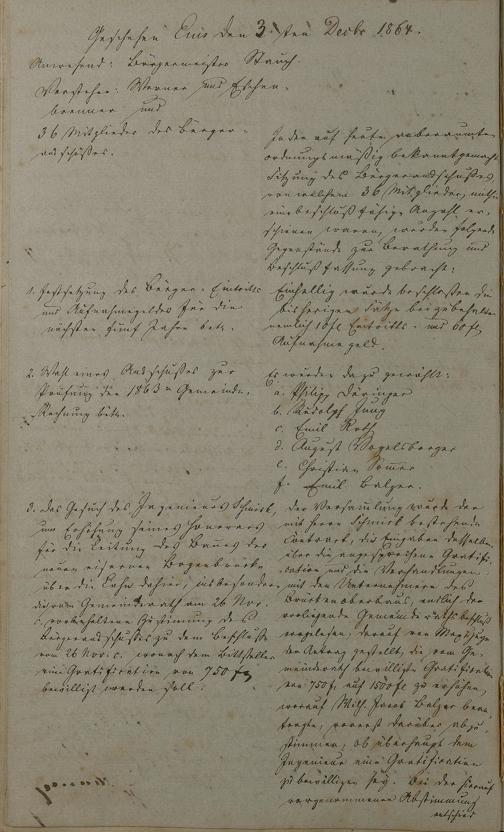 Geschehen Ems den 3ten Decbr 1864.
Anwesend: Bürgermeister Stauch.
Vorsteher: Werner und Eschen-
brenner und
36 Mitglieder des Bürger-
ausschußes.
In der auf heute anberaumten
ordnungsmäßig bekanntgemach-
Sitzung des Bürgerausschußes,
von welchem 36 Mitglieder, mithin
eine beschlußfähige Anzahl er-
schienen waren, wurden folgende
Gegenstände zur Berathung und
Beschlußfassung gebracht:
1. Festsetzung des Bürger-Eintritts
und Aufnahmegeldes für die
nächsten fünf Jahre betr.
Einhellig wurde beschloßen die
bisherigen Sätze beizubehalten
nemlich 10 fl Eintritts- und 60 fl
Aufnahmegeld.
2. Wahl eines Ausschußes zur
Prüfung der 1863er Gemeinde-
Rechnung betr.
Es wurden dazu gewählt:
a. Philipp Döringer
b. Rudolph Jung
c. Emil Roth
d. August Vogelsberger
e. Christian Sommer
f. Emil Balzer.
3. Das Gesuch des Ingenieurs Schmick,
um Erhöhung seines Honorars
für die Leitung des Baues der
neuen eisernen Bogenbrücke
über die Lahn dahier, insbesondere
die vom Gemeinderath am 26 Nov.
c. vorbehaltene Zustimmung des
Bürgerausschußes zu dem Beschluße
vom 26 Nov. c. wonach dem Bittsteller
eine Gratification von 750 fl
bewilligt werden soll.
Der Versammlung wurde der
mit Herrn Schmick bestehende
Contract, die Eingaben desselben
über die angesprochene Gratifi-
cation und die Verhandlungen
mit den Unternehmern des
Brückenoberbaus, endlich der
vorliegende Gemeinderathsbeschluß
vorgelesen, darauf von
der Antrag gestellt, die vom Ge-
meinderath bewilligte Gratification
von 750 fl auf 1500 fl zu erhöhen,
worauf Wilh. Jacob Balzer bean-
tragte, vorerst darüber abzu-
stimmen, ob überhaupt dem
Ingenieur eine Gratification
zu bewilligen sey. Bei der hierauf
vorgenommenen Abstimmung
entschied